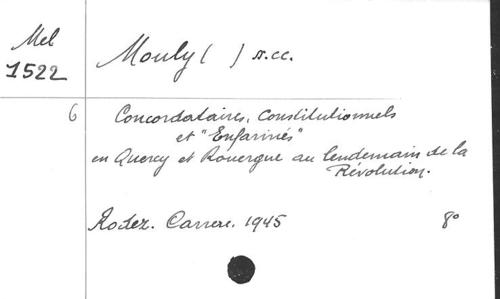 Mel
1522
Mouly ( )
6
Concordataires, Constitutionnels
et "Enfarinés"
en Quercy et Rouergue au lendemain de la
Révolution.
Rodez. Carrere. 1945 8°